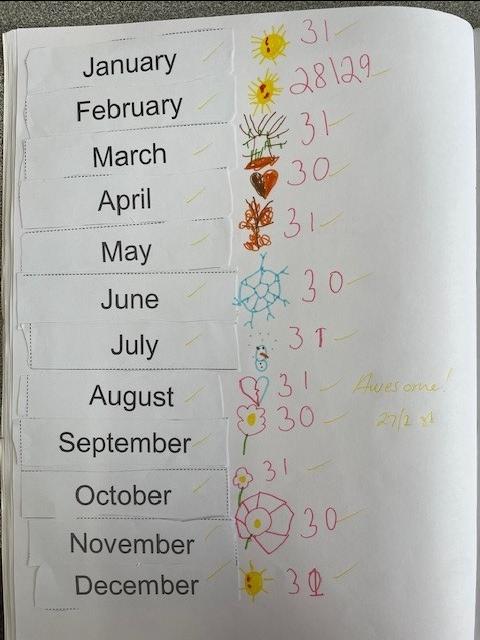 January 31
February 28/29
March 31
April 30
May 31
June 30
July 31
August 31 Awesome!
September 30 27/2
October 31
November 30
December 31